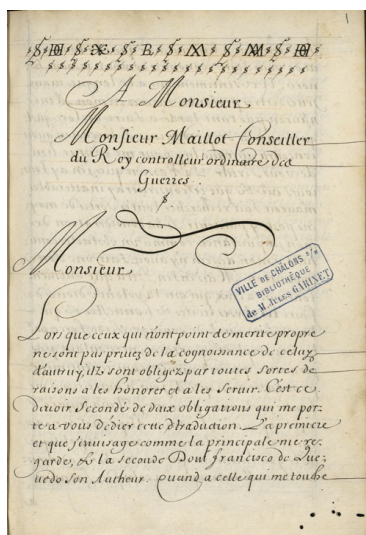 1
A Monsieur
Monsieur Maillot Conseiller
du Roy controlleur ordinaire des
Guerres.
Monsieur
VILLE DE CHÂLONS S/M
BIBLIOTHÈQUE
de M. JULES GARINET
Lors que ceux qui n'ont point de merite propre
ne sont pas privez de la cognoissance de celuy
d'autruy, ilz sont obligez par toutes sortes de
raisons a les honorer et a les servir. C'est ce
devoir secondé de deux obligations qui me por-
te a vous dedier cette traduction. La premiere
et que j'envisage comme la principale me re-
garde, & la seconde Doul francisco de Que-
uedo son Autheur. Quand a celle qui me touche